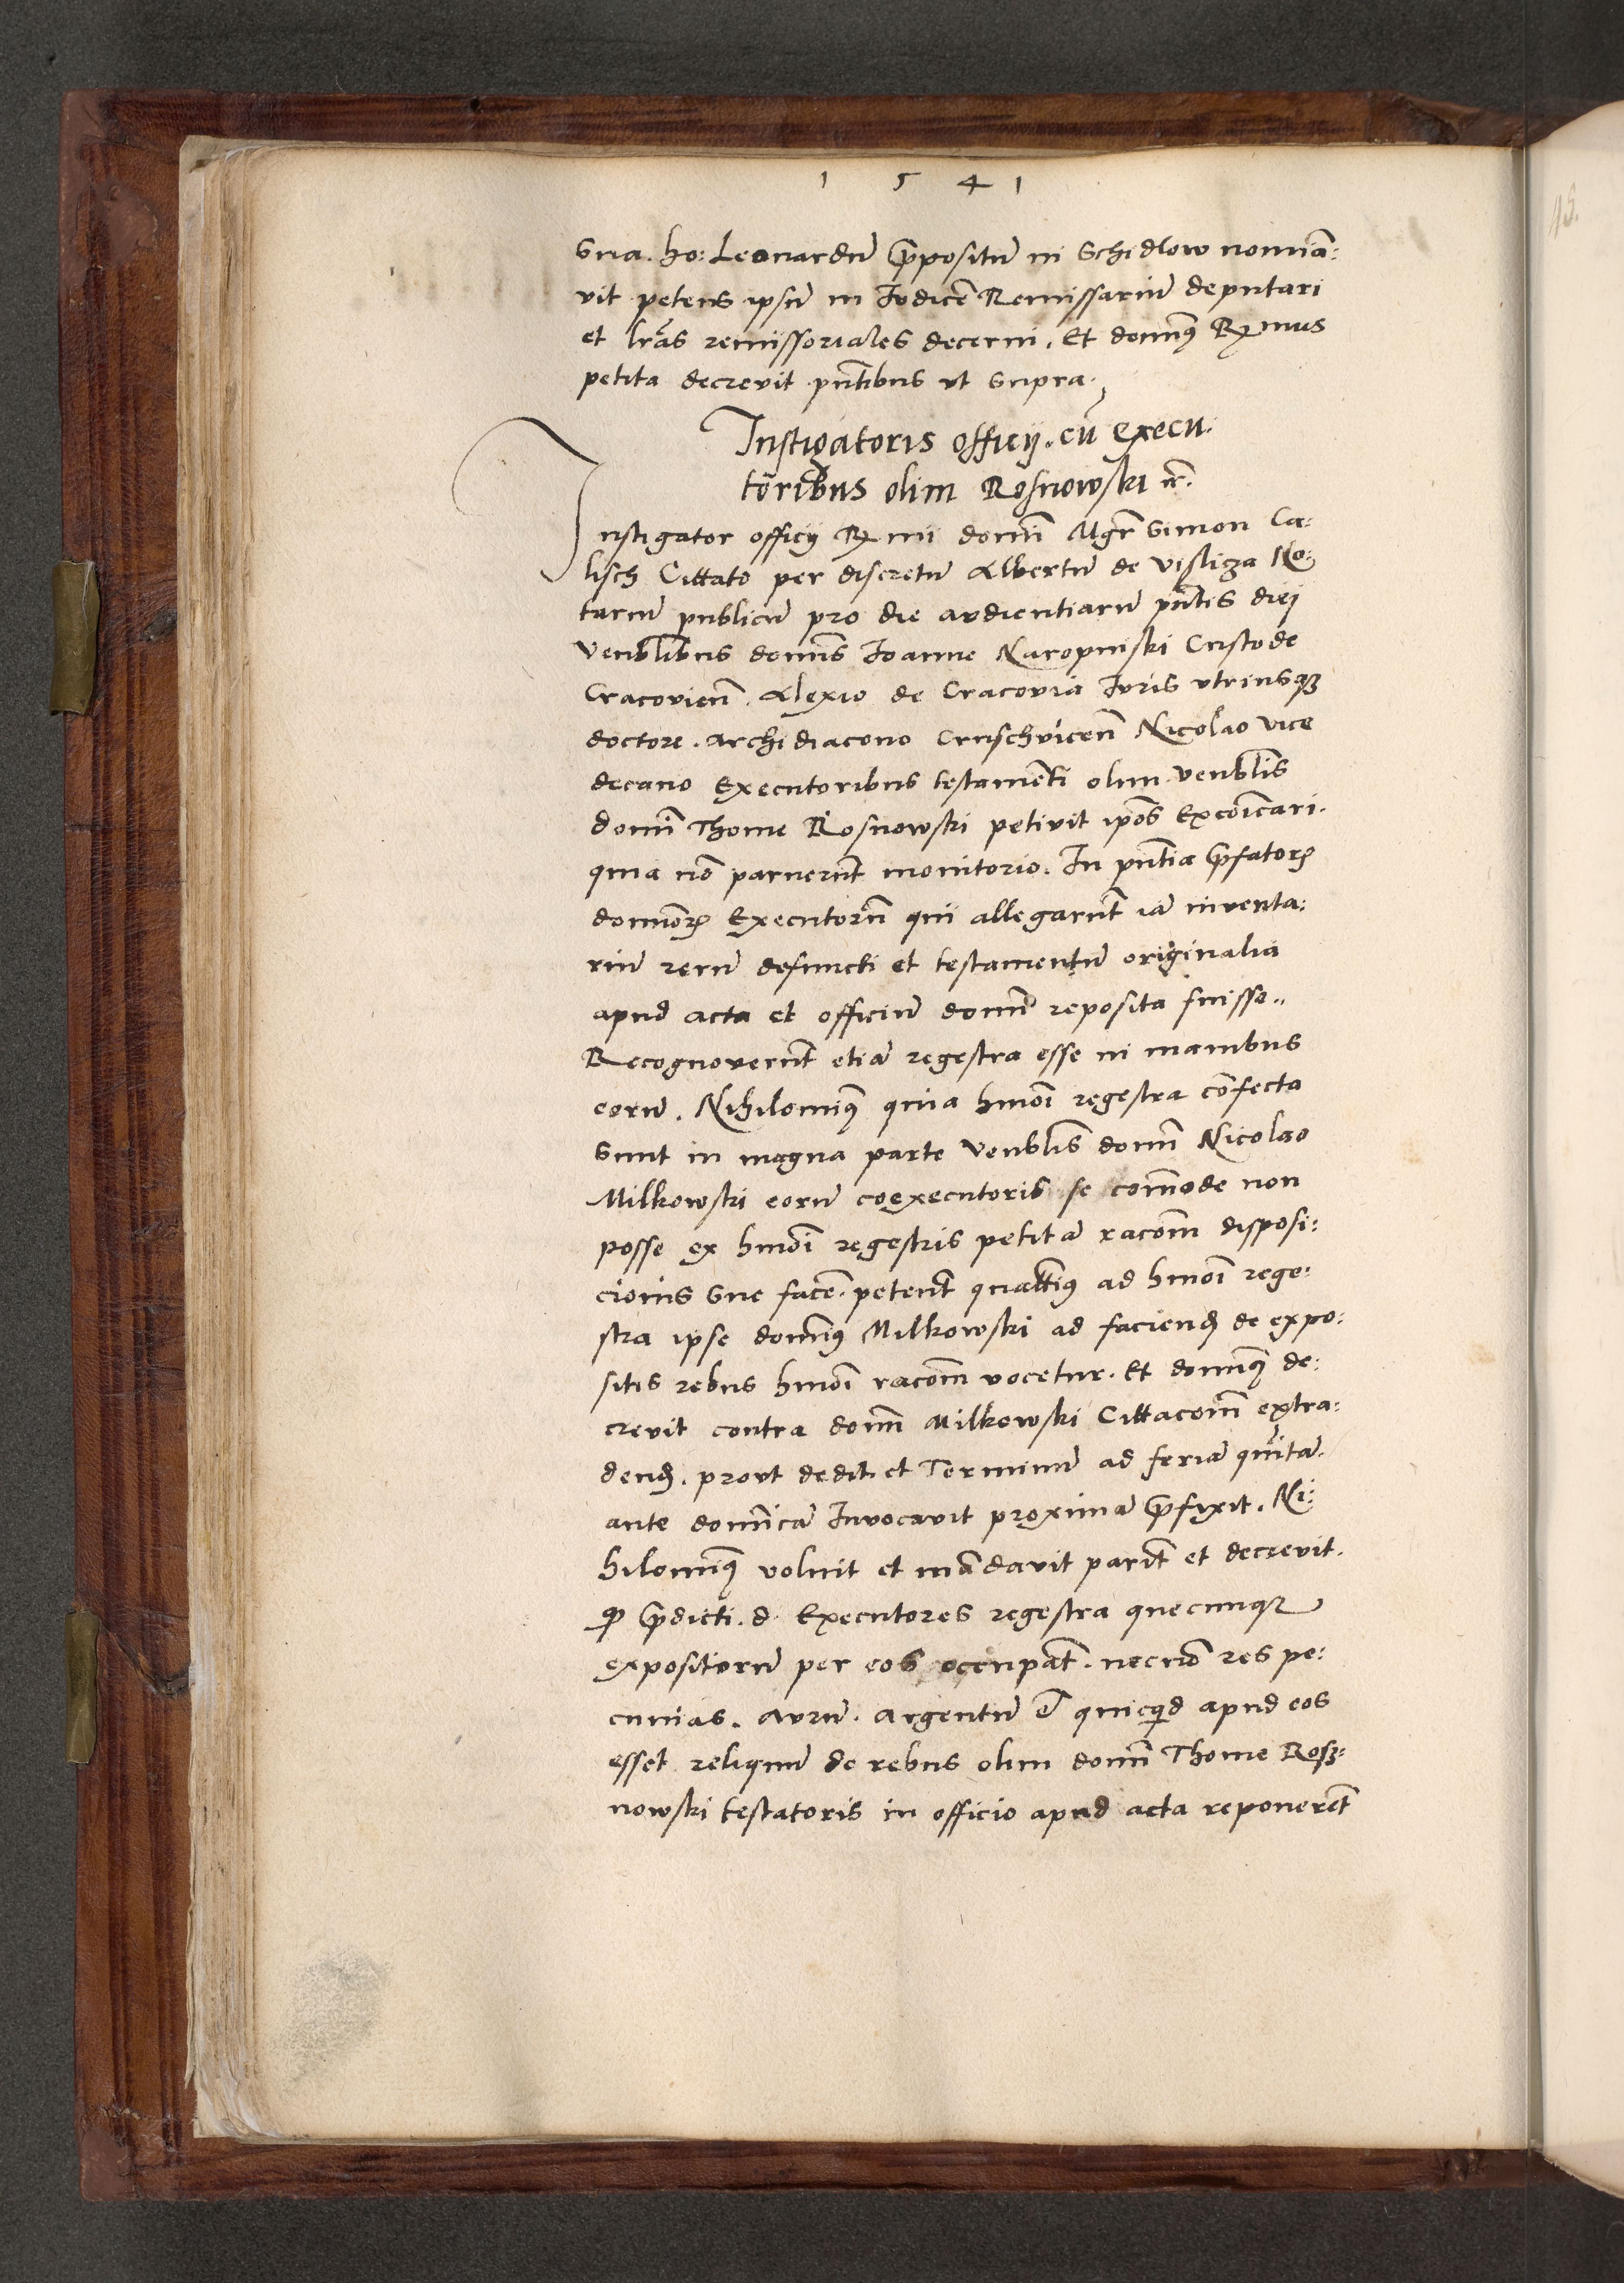 1 5 4 1
sua. ho: Leonardū p̄positū in Schidlow nomīa:
vit petens ipsū in Iudicē Remissariū deputari
et lr̄as remissoriales decerni. Et domin9 R̄mus
petita decrevit pn̄tibus ut supra.
Instigatoris officij. cū execu:
toribus olim Rosnowski etc̄.
Instigator officij R̄mi domī Mgr̄ Simon Ca:
lisch Cittato per discretū Albertū de Vislicza No:
tariū publicū pro die audientiarū pn̄tis diej
Venblibus domīs Ioanne Naropinski Custode
Cracovien̄. Alexio de Cracovia Iuris utriusq3
doctore. Archidiacono Cruschvicen̄ Nicolao vice
decano Executoribus testamēti olim venblis
domī Thome Rosnowski petivit ip̄os Excōicari.
quia nō paruerūt monitorio. In pn̄tia p̄fatorꝝ
dominorꝝ Executorū qui allegarūt iā inventa:
riū rerū defuncti et testamentū originalia
apud acta et officiū domī reposita fuisse..
Recognoverūt etiā regestra esse in manibus
eorū. Nihilomin9 quia hmōi regestra cōfecta
sunt in magna parte Venblis domī Nicolao
Milkowski eorū coexecutoris se commode non
posse ex hmōi regestris petitā racōm disposi:
cionis sue facē. peterūt quatten9 ad hmōi rege:
stra ipse domin9 Milkowski ad faciend de expo:
sitis rebus hmōi racōm vocetur. Et domin9 de:
crevit contra domī Milkowski Cittacom̄ extra:
dend. prout dedit et Terminū ad feriā quītā.
ante dominicā Invocavit proximā p̄fixit. Ni:
hilomin9 voluit et mādavit parit̄ et decrevit.
ꝙ p̄dicti. d. Executores regestra quecunq3
expositorū per eos occupat̄. necnō res pe:
cunias. Aurū. Argentū et quicqd apud eos
esset reliquū de rebus olim domī Thome Ros3:
nowski testatoris in officio apud acta reponerēt